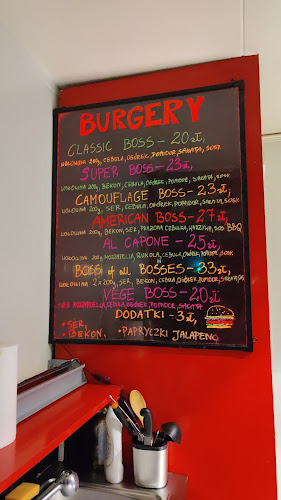 BURGERY
CLASSIC BOSS - 20zł,
WOŁOWINA 200g, CEBULA, OGÓREK, POMIDOR, SAŁATA, SOS.
SUPER BOSS - 23zł,
WOŁOWINA 200g, BEKON, CEBULA, OGÓREK, POMIDOR, SAŁATA, SOS.
CAMOUFLAGE BOSS - 23zł,
WOŁOWINA 200g, SER, CEBULA, OGÓREK, POMIDOR, SAŁATA, SOS
AMERICAN BOSS - 27zł,
WOŁOWINA 200g, BEKON, SER, PRAŻONA CEBULKA, SOS BBQ
AL CAPONE - 25zł,
WOŁOWINA 200g, MOZZARELLA, RUKOLA, CEBULA, POMIDOR, SOS
BOSS of all BOSSES - 33zł,
WOŁOWINA 2x200g, SER, BEKON, CEBULA, OGÓREK, POMIDOR, SAŁATA, SOS
VEGE BOSS - 20zł
SER MOZZARELLA, CEBULA, OGÓREK, POMIDOR, SAŁATA
DODATKI - 3zł,
• SER,
• BEKON,
• PAPRYCZKI JALAPENO,